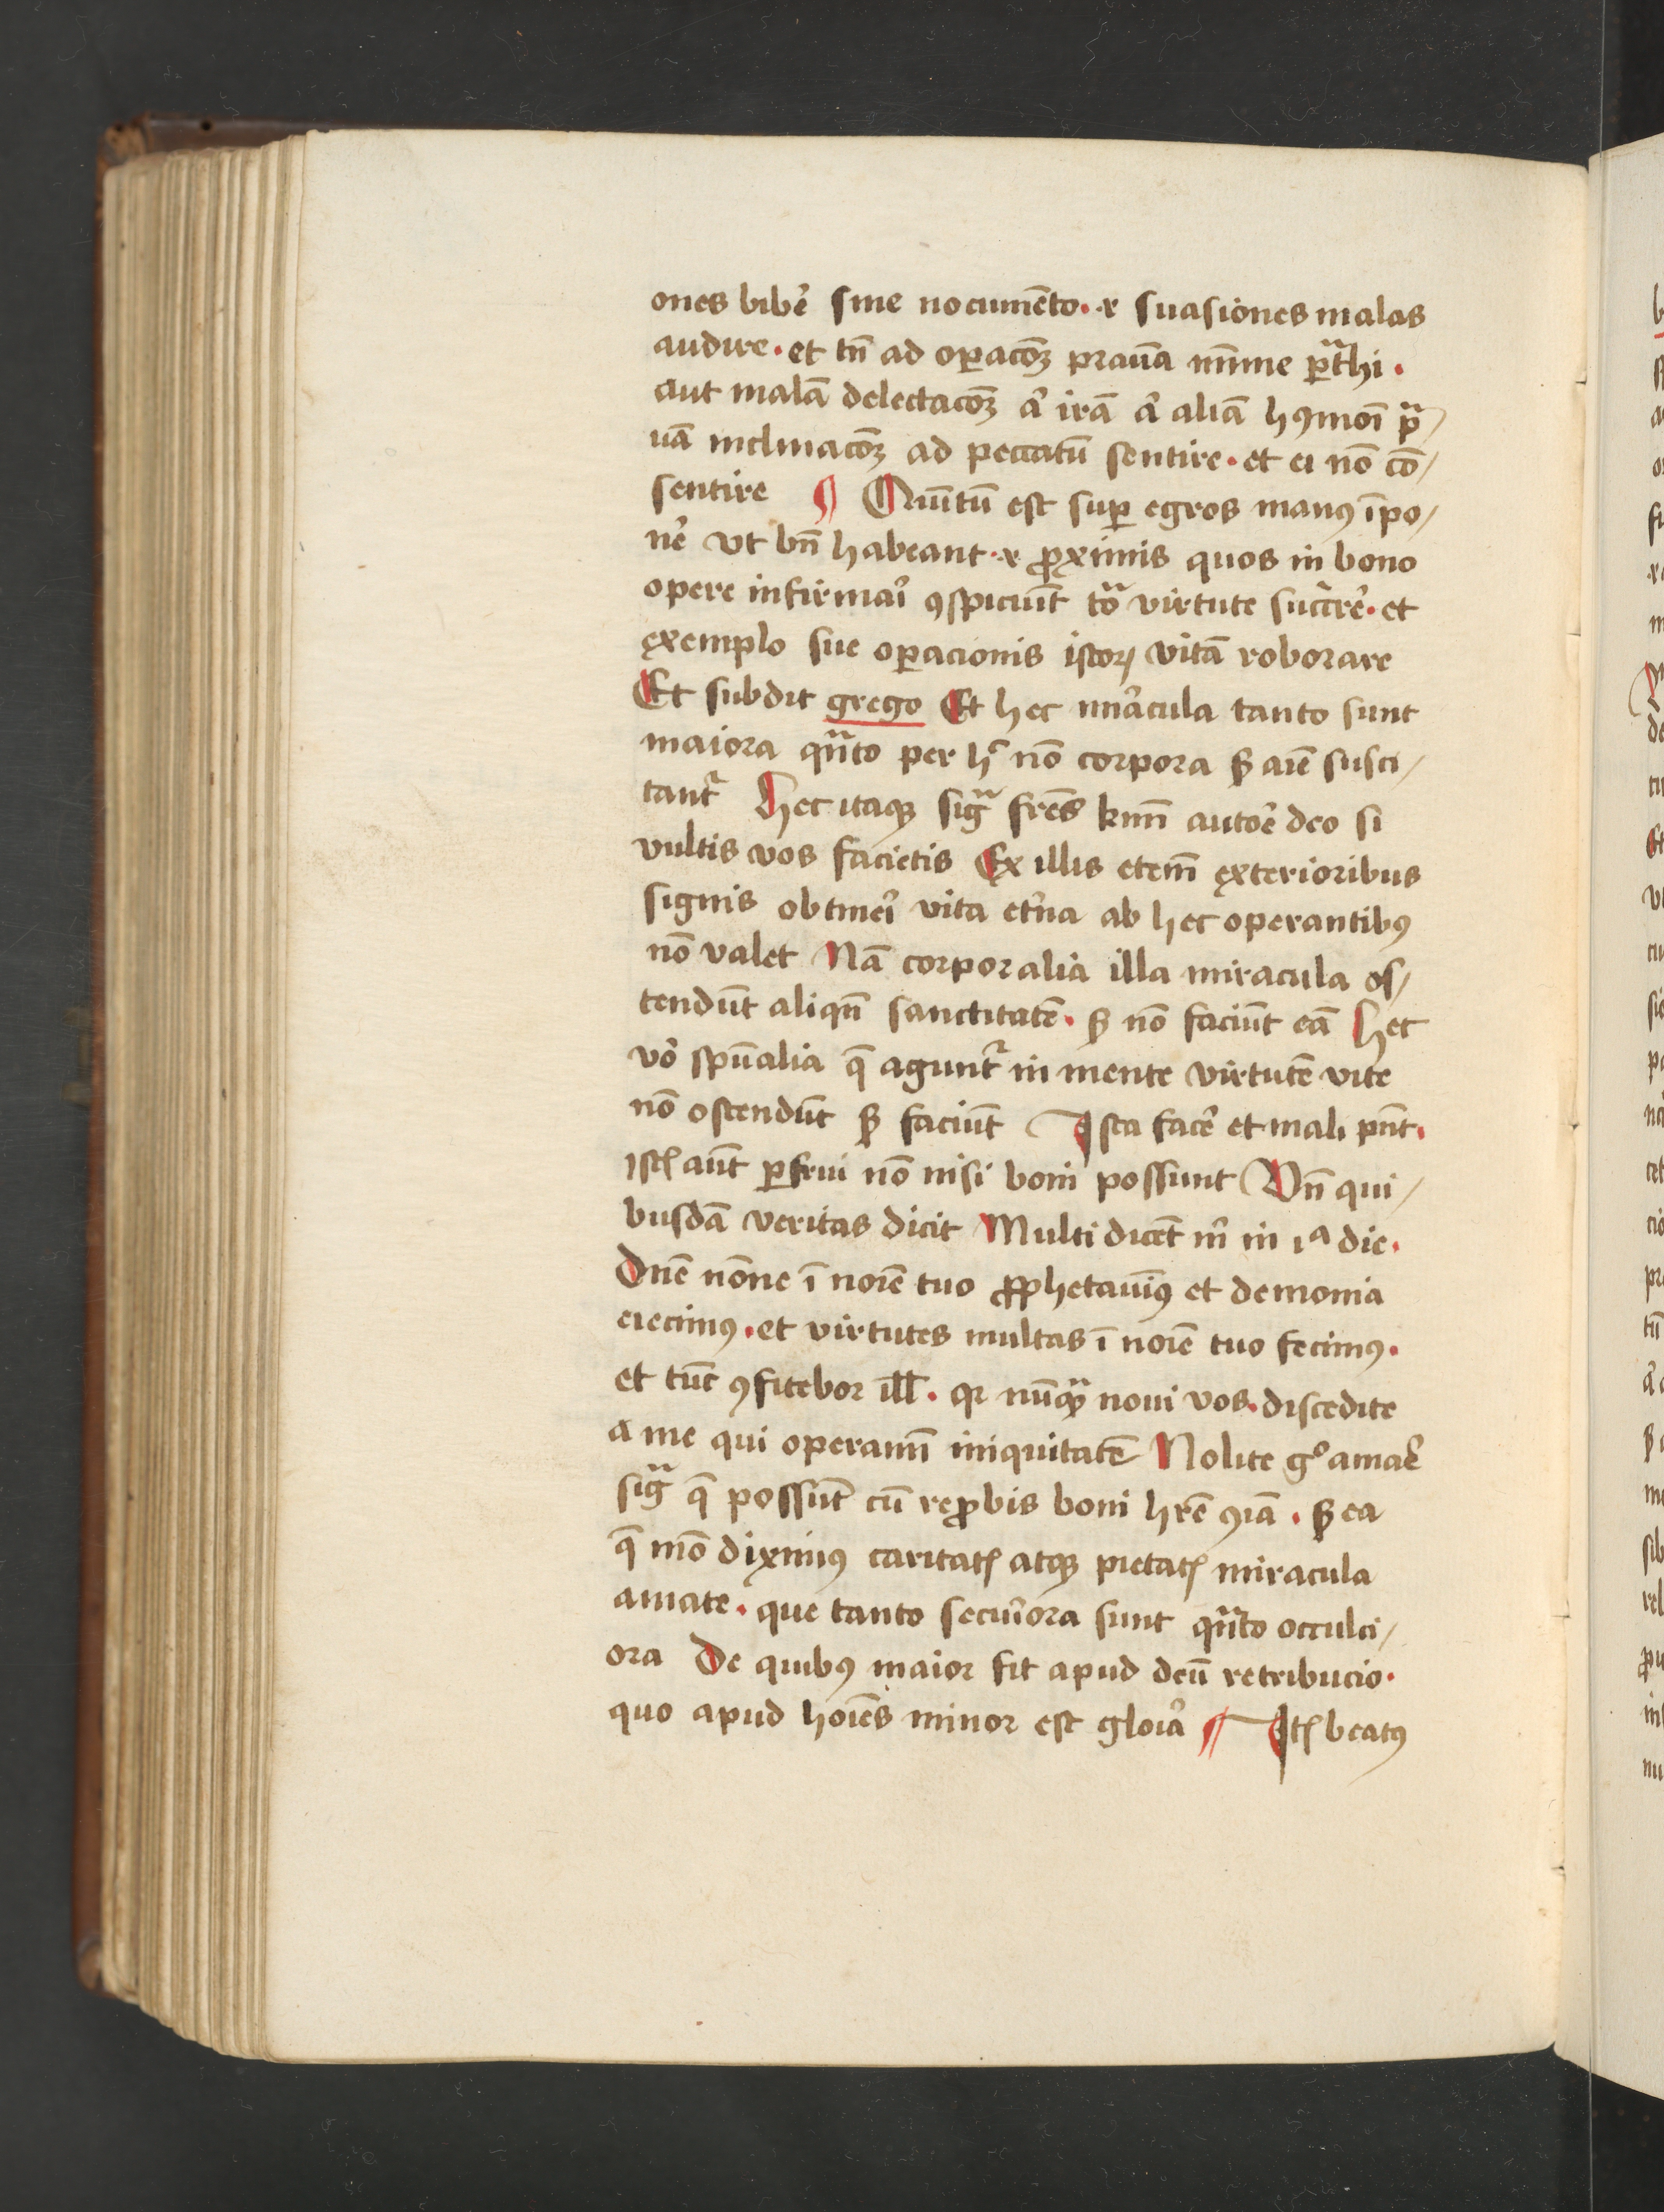 ones bibe᷑ sine nocumēto · ⁊ suasiones malas
audire · et tn̄ ad oꝑacōꝫ prauā mīme ꝑt᷑hi ·
aut malā delectacōꝫ a᷑ irā a᷑ aliā hꝰmōi pᷓ/
uā inclinacōꝫ ad peccatū sentire · et ei nō cō/
sentire ¶ Quītū est suꝑ egros manꝰ īpo/
ne᷑ vt bn̄ habeant · ⁊ ꝓximis quos in bono
opere infirmai᷑ ꝯspiciūt tōᷓ virtute succre᷑ · et
exemplo sue oꝑacionis istoꝝ vitā roborare
Et subdit grego Et hec mi᷑acula tanto sunt
maiora qᷓnto per hͨ nō corpora sꝫ aīe susci/
tant᷑ Hec itaqꝫ sigᷓ fr̄es kmī autoe᷑ deo si
vultis vos facietis Ex illis etem̄ exterioribus
signis obtinei᷑ vita et᷑na ab hec operantibꝰ
nō valet Nā corporalia illa miracula os/
tendūt aliqn̄ sanctitatē · sꝫ nō faciūt eā Hec
vo᷑ spūalia q̄ agunt᷑ in mente virtutē vite
nō ostendūt sꝫ faciūt Ista face᷑ et mali pn̄t ·
istꝭ aūt ꝑfrui nō nisi boni possunt Vn̄ qui/
busdā veritas dicit Multi dicēt m᷑ in iᵃ die ·
Dn̄e nōne ī noīe tuo ꝓphetauīꝰ et demonia
eiecimꝰ · et virtutes multas ī noīe tuo fecimꝰ ·
et tūc ꝯfitebor ill̄ · qꝛ nūqᷓꝫ noui vos · discedite
a me qui operamī iniquitatē Nolite gͦ amae᷑
sigᷓ q̄ possūt cū reꝓbis boni hr̄e ꝯīa · sꝫ ea
q̄ mō diximꝰ caritatꝭ atqꝫ pietatꝭ miracula
amate · que tanto secui᷑ora sunt qᷓnto occulci/
ora De quibꝰ maior fit apud deū retribucio ·
quo apud hoīes minor est gloi᷑a ¶ Itꝭ beatꝰ